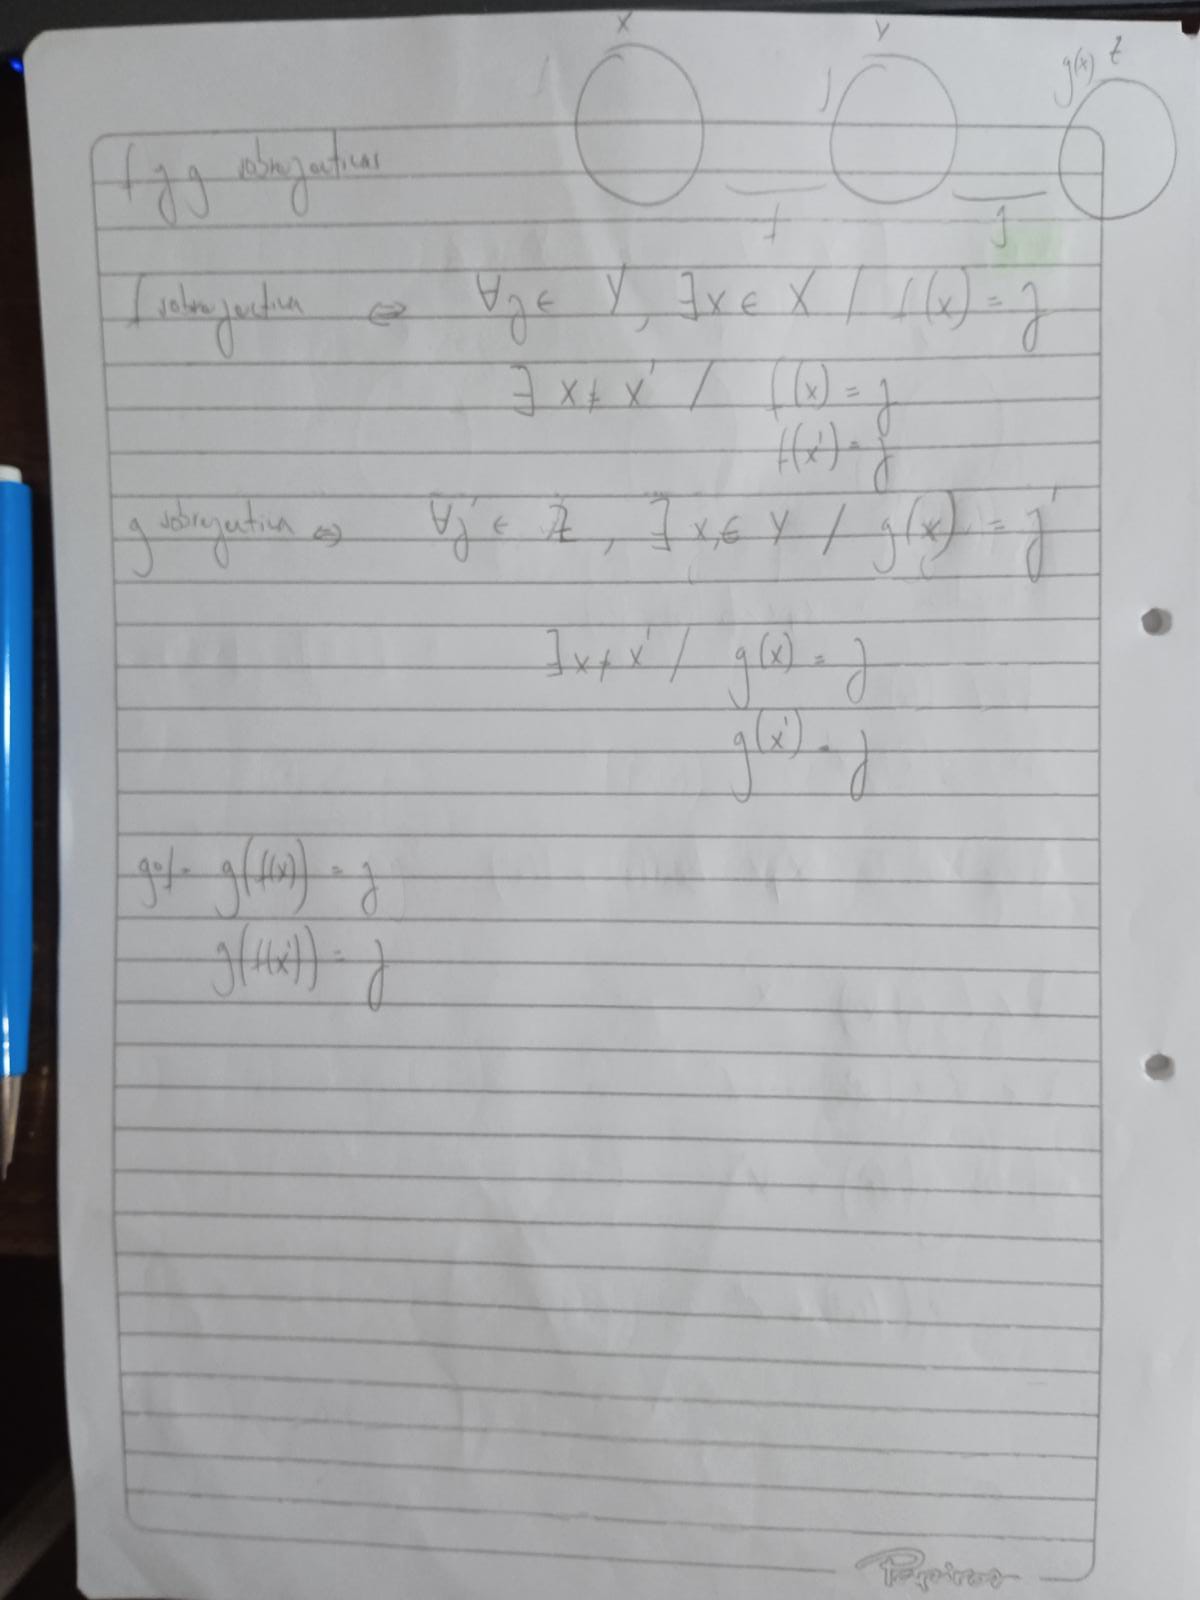 X Y g(x) Z
f g
f y g sobreyectivas
f sobreyectiva ⇔ ∀y ∈ Y, ∃x ∈ X / f(x) = y
∃ x ≠ x' / f(x) = y
f(x') = y
g sobreyectiva ⇔ ∀y' ∈ Z, ∃ x, ∈ Y / g(x) = y'
∃x ≠ x' / g(x) = y
g(x') = y
gof = g(f(x)) = y
g(f(x')) = y